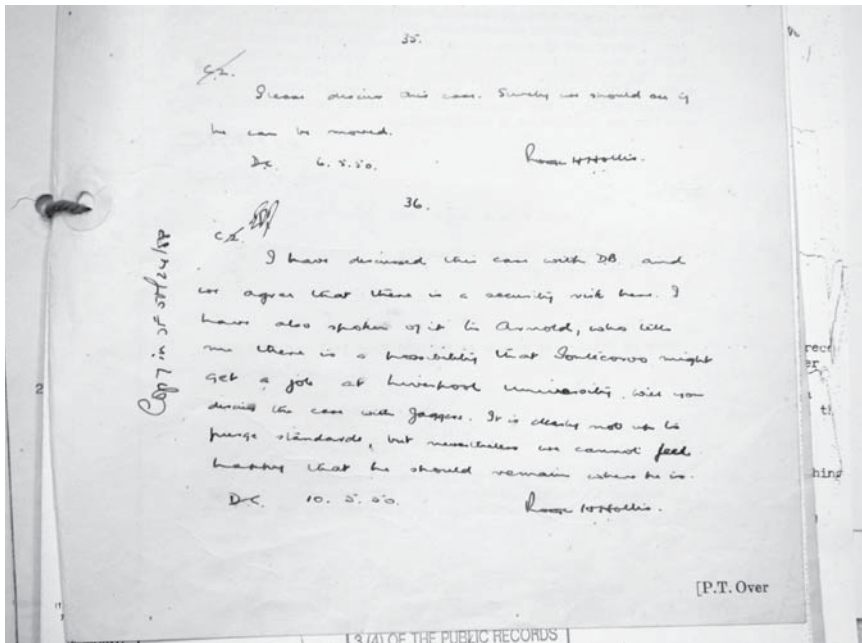 35.
C.2.
Please discuss this case. Surely we should see if
he can be moved.
D.C. 6.5.50. Roger H Hollis.
36.
C.2.
I have discussed this case with DB, and
we agree that there is a security risk here. I
have also spoken of it to Arnold, who tells
me there is a possibility that Pontecorvo might
get a job at Liverpool University. Will you
discuss the case with Jaggers. It is clearly not up to
purge standards, but nevertheless we cannot feel
happy that he should remain where he is.
D.C. 10.5.50. Roger H Hollis.
[P.T. Over
Copy in
2
rec
er
th
hing
3 (4) OF THE PUBLIC RECORDS